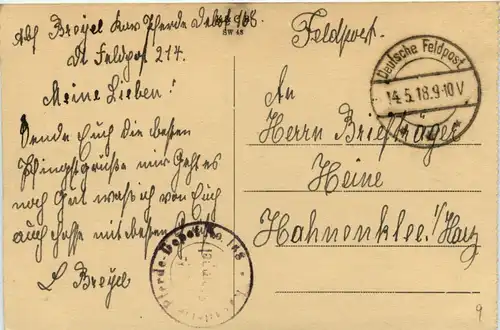 Abs Breyel Kav Pferde Depot 168
Dt Feldpost 214.
Meine Lieben!
Sende Euch die besten
Pfingstgrüße mir Geht es
noch Gut was ich von Euch
auch hoffe mit besten
L Breyel
SW 48
Feldpost.
Deutsche Feldpost
14.5.18.9-10V
An
Herrn Briefträger
Heine
Hahnenklee i/Harz
Pferde-Depot No. 168
9